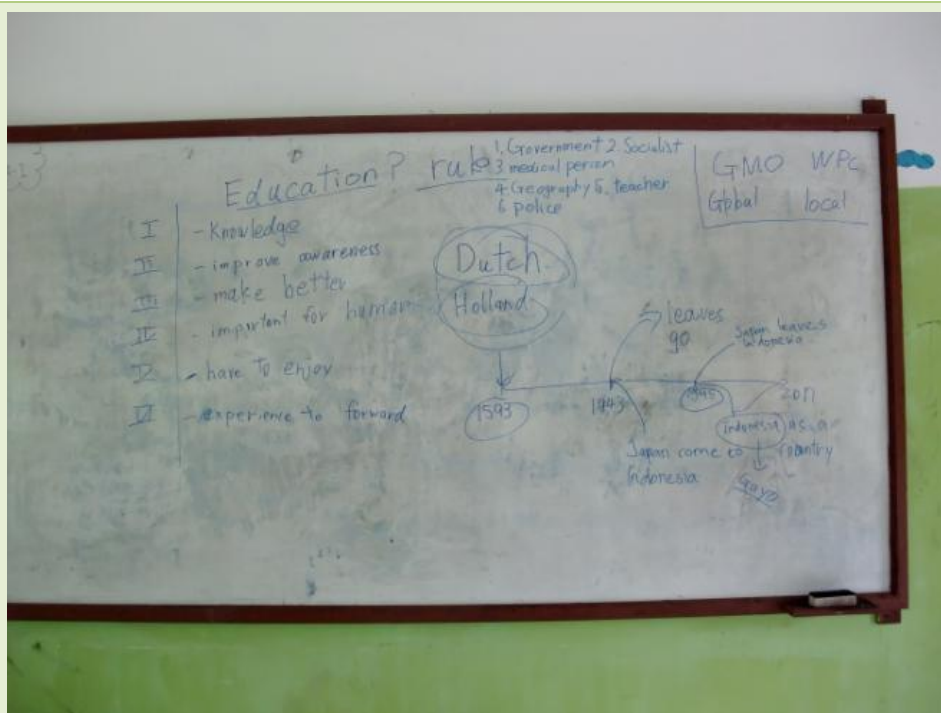 Education? rule
1. Government 2. Socialist
3 medical person
4 Geography 5. teacher
6 police
GMO WPC
Global local
I - Knowledge
II - improve awareness
III - make better
IV - important for human
V - have to enjoy
VI - experience to forward
Dutch.
Holland
leaves
90
Japan leaves
Indonesia
1593
1943
1945
2011
Japan come to
Indonesia
Indonesia as a
country
Gayo